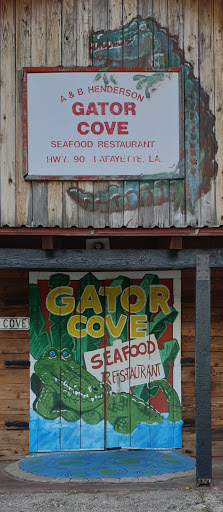 A & B HENDERSON
GATOR
COVE
SEAFOOD RESTAURANT
HWY. 90 LAFAYETTE, LA.
GATOR
COVE
SEAFOOD
RESTAURANT
COVE